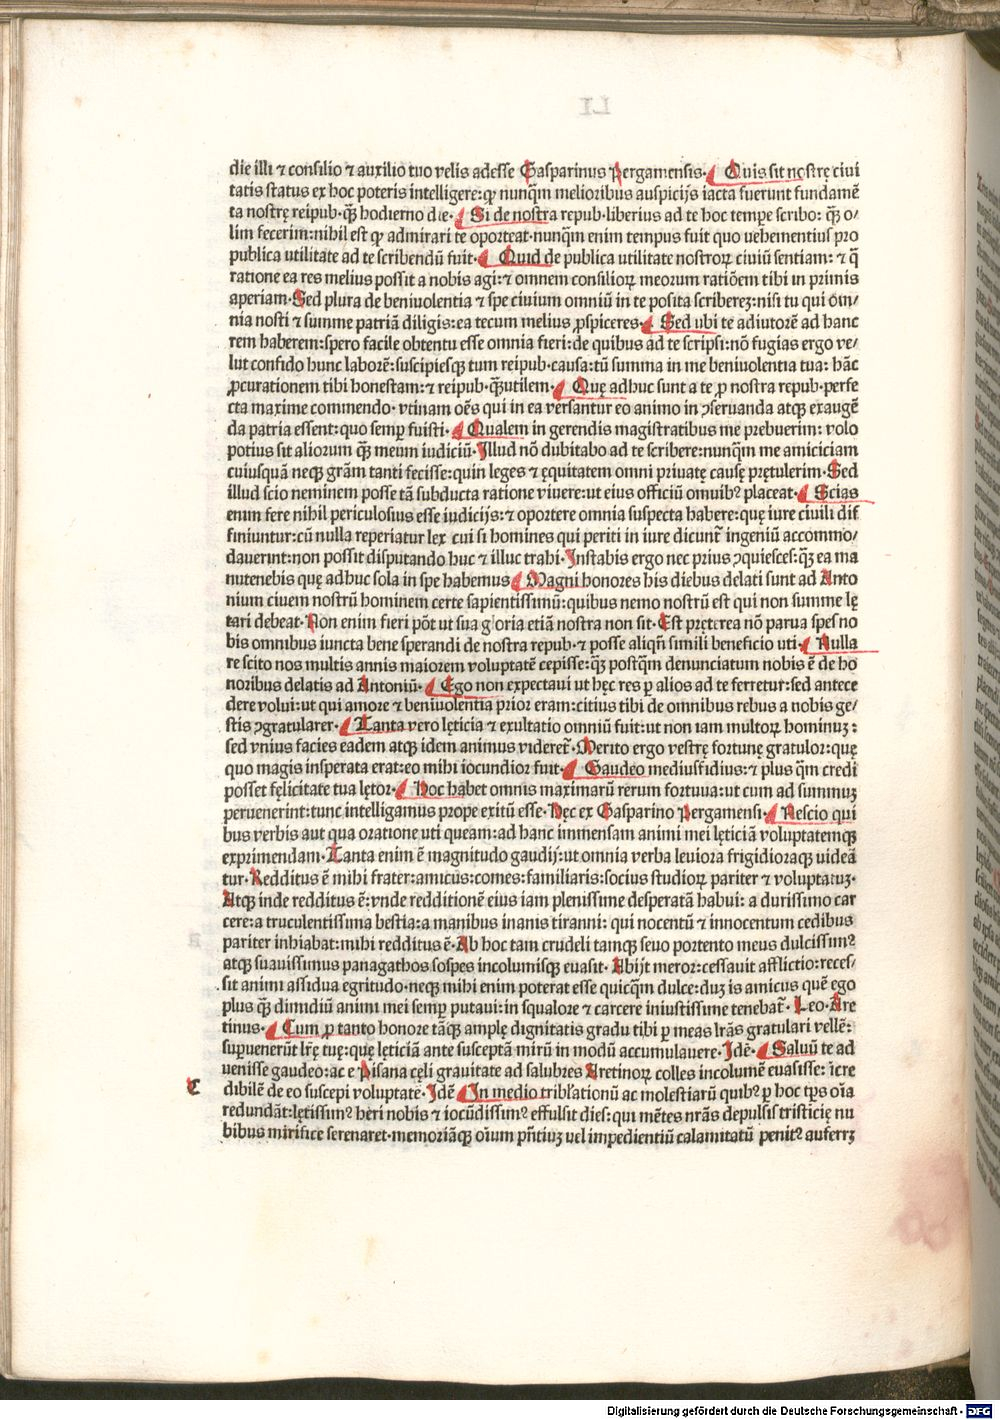 die illi ⁊ consilio ⁊ auxilio tuo velis adesse Gasparinus Pergamensis. Quis sit nostrę civi
tatis status ex hoc poteris intelligere: qꝫ nunq̃m melioribus auspicijs iacta fuerunt fundamē
ta nostrę reipub. q̃ꝫ hodierno die. Si de nostra repub. liberius ad te hoc tempe scribo: q̃ꝫ o/
lim fecerim: nihil est qꝫ admirari te oporteat. nunq̃m enim tempus fuit quo uehementius pro
publica utilitate ad te scribendū fuit. Quid de publica utilitate nostroꝝ civiū sentiam: ⁊ q̃
ratione ea res melius possit a nobis agi: ⁊ omnem consilioꝝ meorum ratiōem tibi in primis
aperiam. Sed plura de beniuolentia ⁊ spe civium omniū in te posita scribereꝫ: nisi tu qui om/
nia nosti ⁊ summe patriā diligis: ea tecum melius ꝓspiceres. Sed ubi te adiutorē ad hanc
rem haberem: spero facile obtentu esse omnia fieri: de quibus ad te scripsi: nō fugias ergo ve/
lut confido hunc laborē: suscipiesqꝫ tum reipub. causa: tū summa in me beniuolentia tua: hāc
ꝓcurationem tibi honestam: ⁊ reipub. q̃ꝫ utilem. Quę adhuc sunt a te ꝓ nostra repub. perfe
cta maxime commendo. vtinam oēs qui in ea versantur eo animo in ꝯseruanda atqꝫ exaugē
da patria essent: quo semꝑ fuisti. Qualem in gerendis magistratibus me prebuerim: volo
potius sit aliorum q̃ꝫ meum iudiciū. Illud nō dubitabo ad te scribere: nunq̃m me amiciciam
cuiusquā neqꝫ grām tanti fecisse: quin leges ⁊ ęquitatem omni privatę causę prętulerim. Sed
illud scio neminem posse tā subducta ratione vivere: ut eius officiū omnibꝰ placeat. Scias
enim fere nihil periculosius esse iudicijs: ⁊ oportere omnia suspecta habere: quę iure civili dif
finiuntur: cū nulla reperiatur lex cui si homines qui periti in iure dicunt̃ ingeniū accommo/
dauerint: non possit disputando huc ⁊ illuc trahi. Instabis ergo nec prius ꝯquiesces: q̃ꝫ ea ma
nu tenebis quę adhuc sola in spe habemus Magni honores his diebus delati sunt ad Anto
nium civem nostrū hominem certe sapientissimū: quibus nemo nostrū est qui non summe lę
tari debeat. Non enim fieri pōt ut sua gloria etiā nostra non sit. Est pręterea nō parua spes no
bis omnibus iuncta bene sperandi de nostra repub. ⁊ posse aliqñ simili beneficio uti. Nulla
re scito nos multis annis maiorem voluptatē cepisse: q̃ꝫ postq̃m denunciatum nobis ē de ho
noribus delatis ad Antoniū. Ego non expectaui ut hęc res ꝑ alios ad te ferretur: sed antece
dere volui: ut qui amore ⁊ beniuolentia prior eram: citius tibi de omnibus rebus a nobis ge/
stis ꝯgratularer. Tanta vero lęticia ⁊ exultatio omniū fuit: ut non iam multoꝝ hominuꝫ:
sed vnius facies eadem atqꝫ idem animus videret̃. Merito ergo vestrę fortunę gratulor: quę
quo magis insperata erat: eo mihi iocundior fuit. Gaudeo mediusfidius: ⁊ plus q̃m credi
posset fęlicitate tua lętor. Hoc habet omnis maximarū rerum fortuna: ut cum ad summuꝫ
peruenerint: tunc intelligamus prope exitū esse. Hęc ex Gasparino Pergamensi. Nescio qui
bus verbis aut qua oratione uti queam: ad hanc immensam animi mei lęticiā voluptatemqꝫ
exprimendam. Tanta enim ē magnitudo gaudij: ut omnia verba leuiora frigidioraqꝫ uideā
tur. Redditus ē mihi frater: amicus: comes: familiaris: socius studioꝝ pariter ⁊ voluptatuꝫ.
Atqꝫ inde redditus ē: vnde redditionē eius iam plenissime desperatā habui: a durissimo car
cere: a truculentissima bestia: a manibus inanis tiranni: qui nocentū ⁊ innocentum cedibus
pariter inhiabat: mihi redditus ē. Ab hoc tam crudeli tamqꝫ seuo portento meus dulcissimꝰ
atqꝫ suauissimus panagathos sospes incolumisqꝫ euasit. Abijt meror: cessauit afflictio: reces/
sit animi assidua egritudo. neqꝫ mihi enim poterat esse quicq̃m dulce: duꝫ is amicus quē ego
plus q̃ꝫ dimdiū animi mei semꝑ putaui: in squalore ⁊ carcere iniustissime tenebat̃. Leo. Are
tinus. Cum ꝑ tanto honore tāqꝫ amplę dignitatis gradu tibi ꝑ meas lrās gratulari vellē:
suꝑuenerūt lrę tuę: quę lęticiā ante susceptā mirū in modū accumulauere. Idē. Saluū te ad
uenisse gaudeo: ac e Pisana cęli grauitate ad salubres Aretinoꝝ colles incolumē euasisse: īcre
dibilē de eo suscepi voluptatē. Idē In medio tribl̃ationū ac molestiarū quibꝰ ꝑ hoc tp̄s oīa
redundāt: lętissimꝰ heri nobis ⁊ iocūdissimꝰ effulsit dies: qui mētes nrās depulsis tristicię nu
bibus mirifice serenaret. memoriāqꝫ oīum pñtiuꝫ uel impedientiū calamitatū penitꝰ auferrꝫ
Digitalisierung gefördert durch die Deutsche Forschungsgemeinschaft - DFG